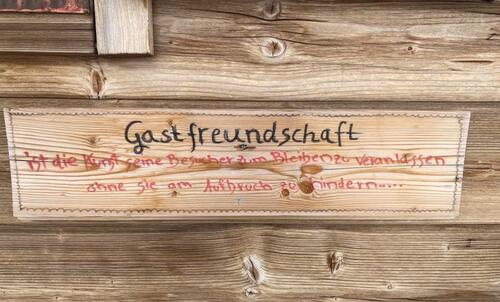 Gastfreundschaft
ist die Kunst seine Besucher zum Bleiben zu veranlassen
ohne sie am Aufbruch zu hindern....